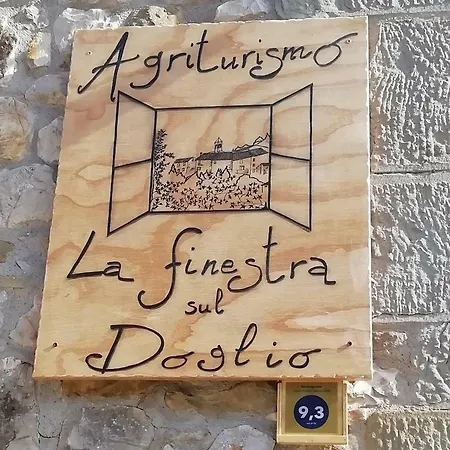 Agriturismo
La finestra
sul
Doglio
9,3